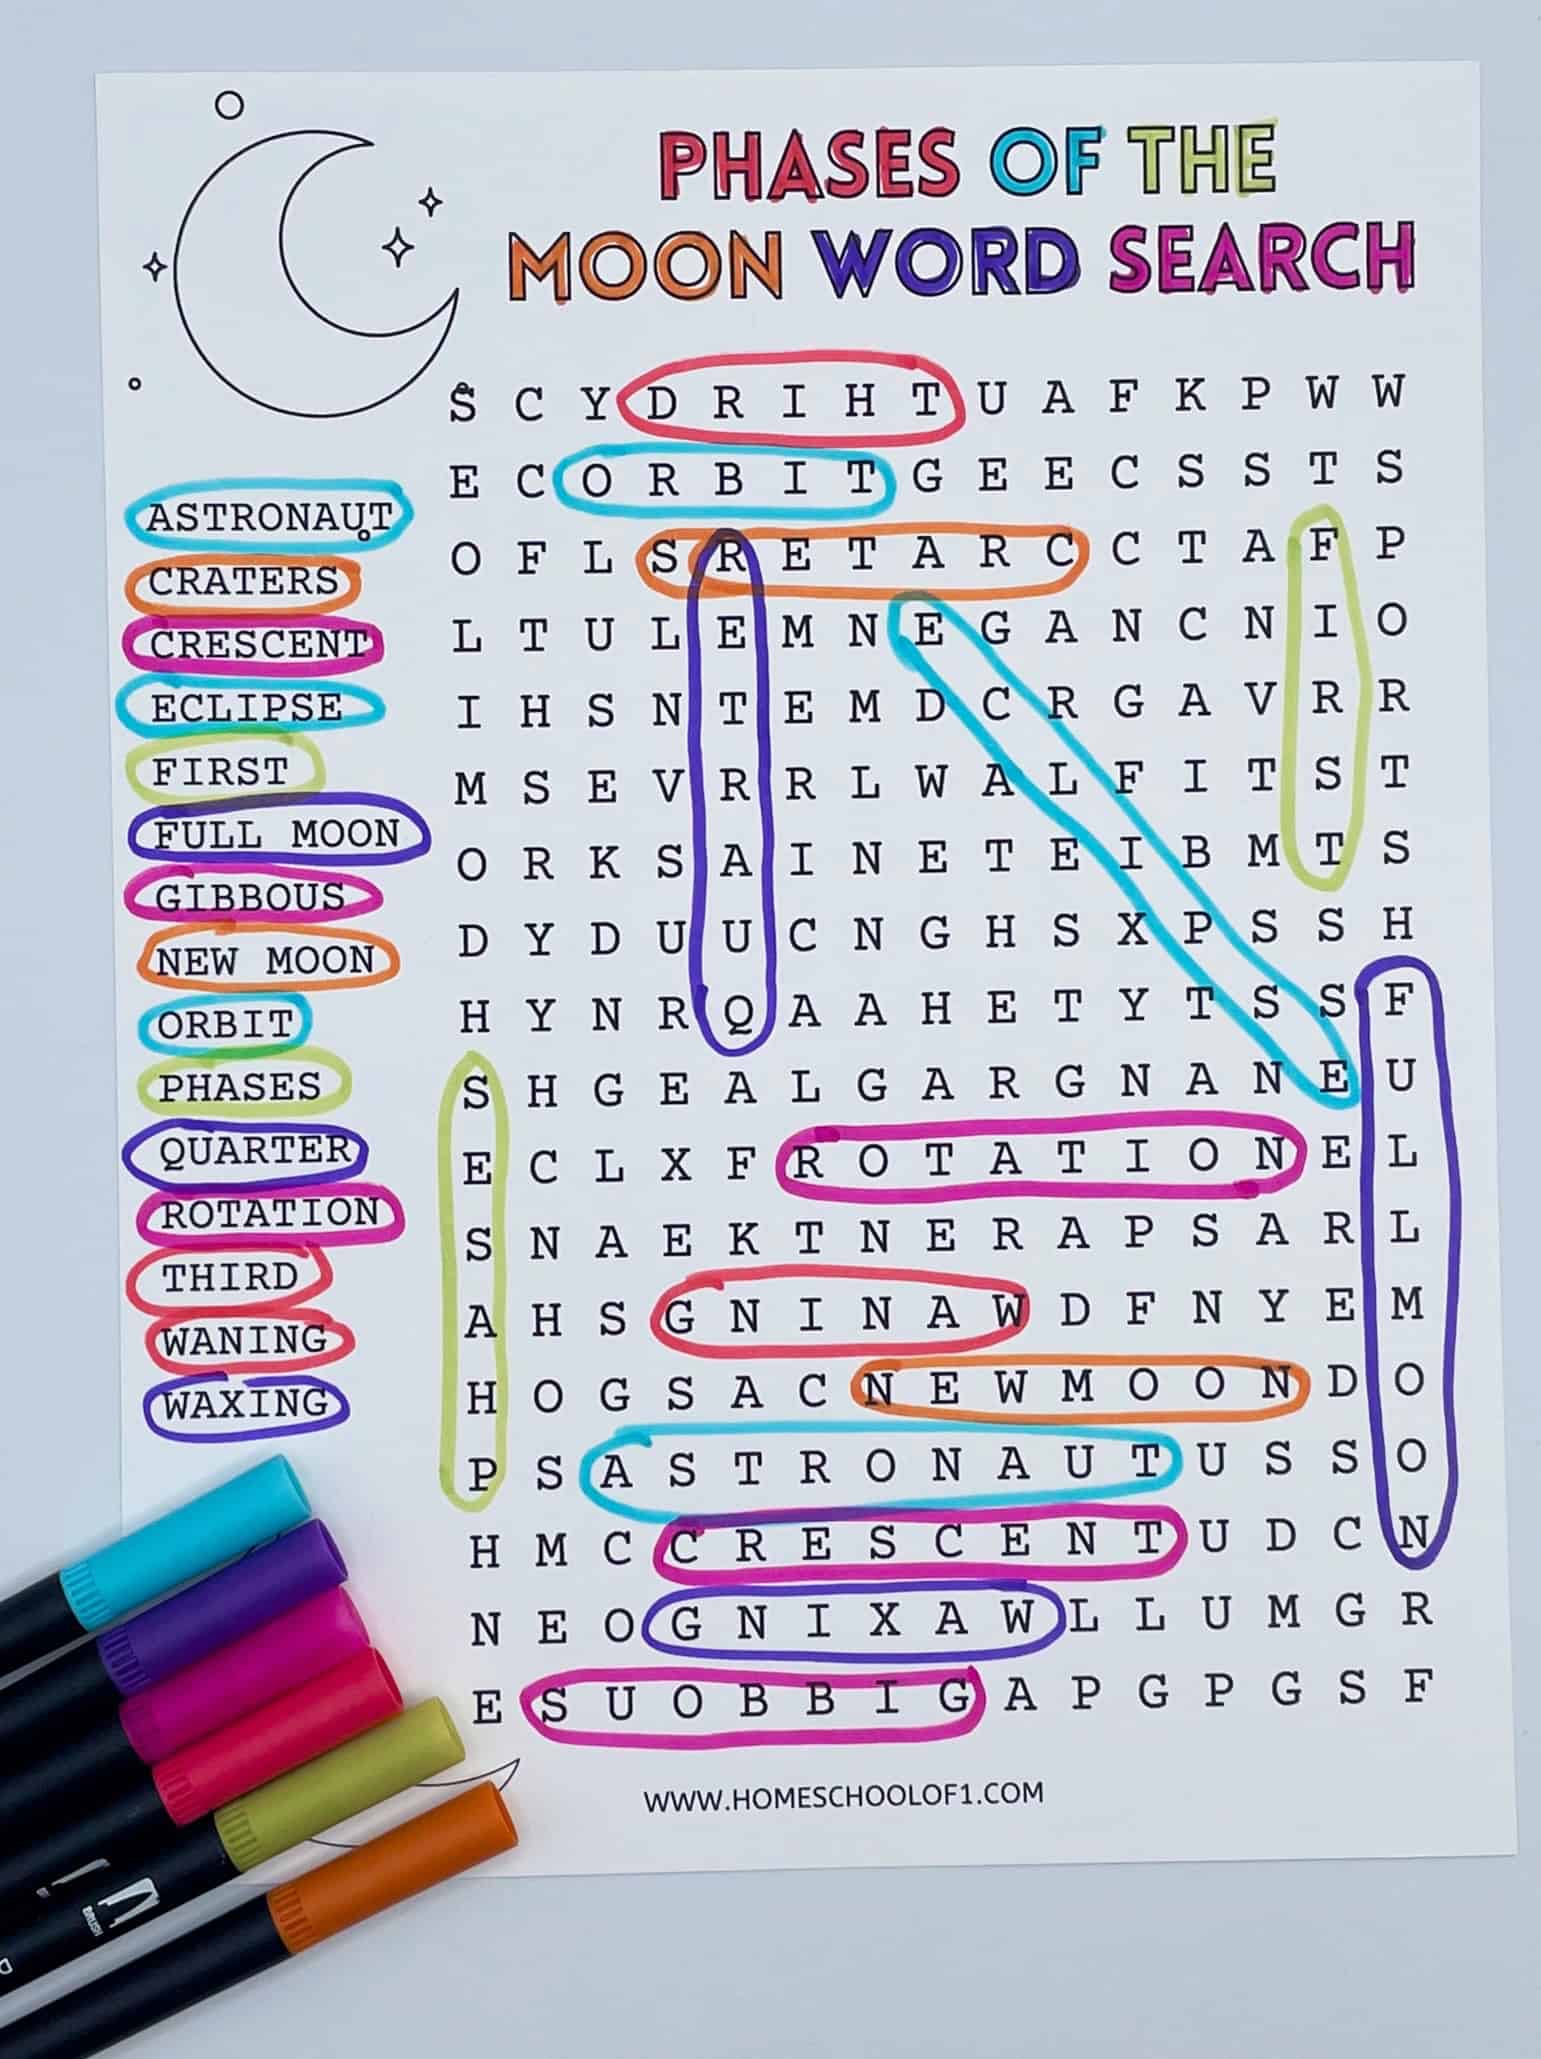 PHASES OF THE
MOON WORD SEARCH
ASTRONAUT
CRATERS
CRESCENT
ECLIPSE
FIRST
FULL MOON
GIBBOUS
NEW MOON
ORBIT
PHASES
QUARTER
ROTATION
THIRD
WANING
WAXING
S C Y D R I H T U A F K P W W
E C O R B I T G E E C S S T S
O F L S R E T A R C C T A F P
L T U L E M N E G A N C N I O
I H S N T E M D C R G A V R R
M S E V R R L W A L F I T S T
O R K S A I N E T E I B M T S
D Y D U U C N G H S X P S S H
H Y N R Q A A H E T Y T S S F
S H G E A L G A R G N A N E U
E C L X F R O T A T I O N E L
S N A E K T N E R A P S A R L
A H S G N I N A W D F N Y E M
H O G S A C N E W M O O N D O
P S A S T R O N A U T U S S O
H M C C R E S C E N T U D C N
N E O G N I X A W L L U M G R
E S U O B B I G A P G P G S F
WWW.HOMESCHOOLOF1.COM
BRUSH